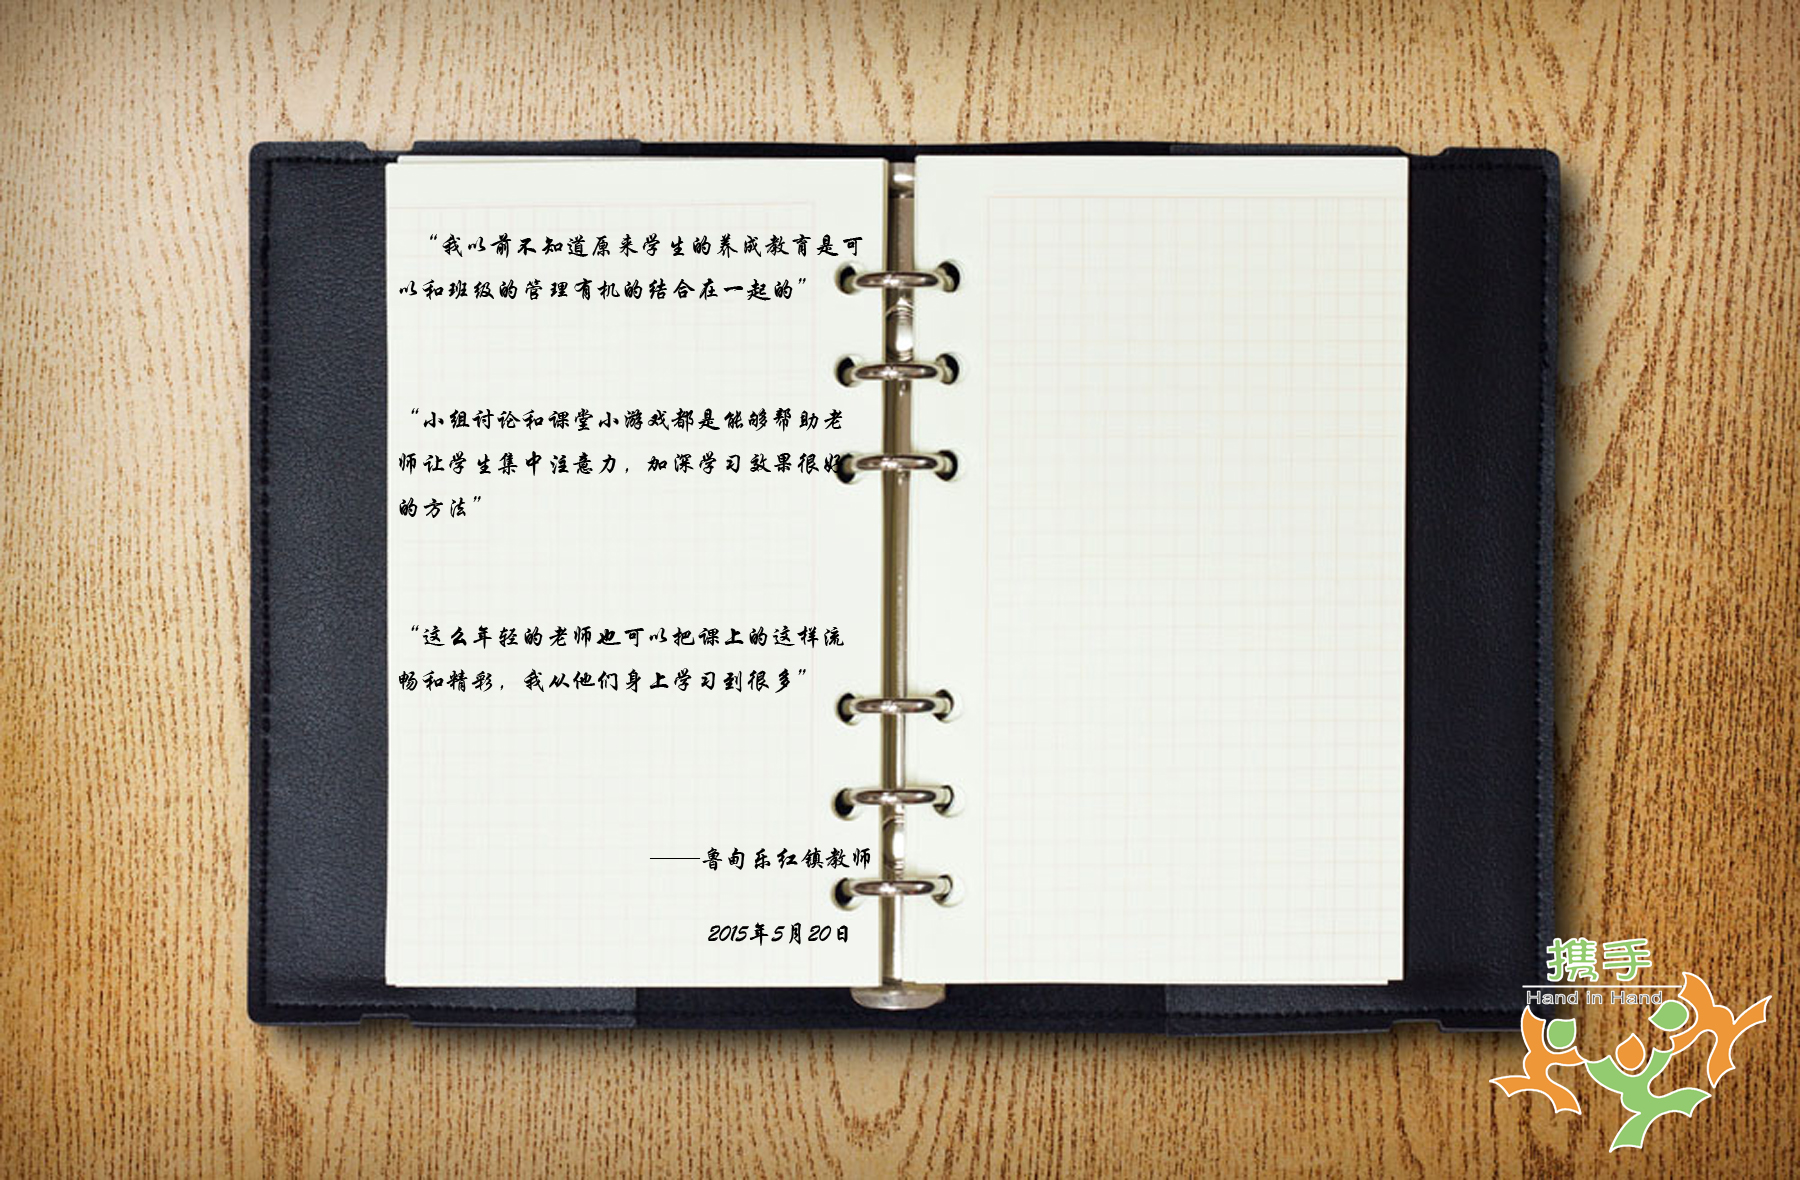 “我以前不知道原来学生的养成教育是可
以和班级的管理有机的结合在一起的”
“小组讨论和课堂小游戏都是能够帮助老
师让学生集中注意力，加深学习效果很好
的方法”
“这么年轻的老师也可以把课上的这样流
畅和精彩，我从他们身上学习到很多”
——鲁甸乐红镇教师
2015年5月20日
携手
Hand in Hand